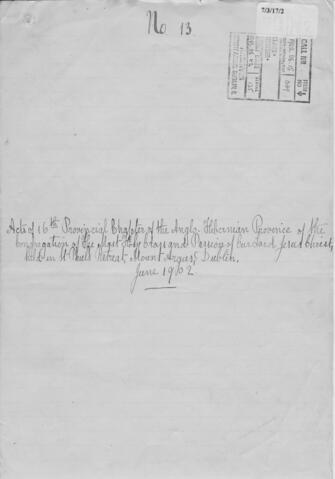 7/3/17/2
No 13
CALL NO
Acts of 16th Provincial Chapter of the Anglo-Hibernian Province of the
Congregation of the Most Holy Cross and Passion of our Lord Jesus Christ,
held in St Paul's Retreat, Mount Argus, Dublin.
June 1902